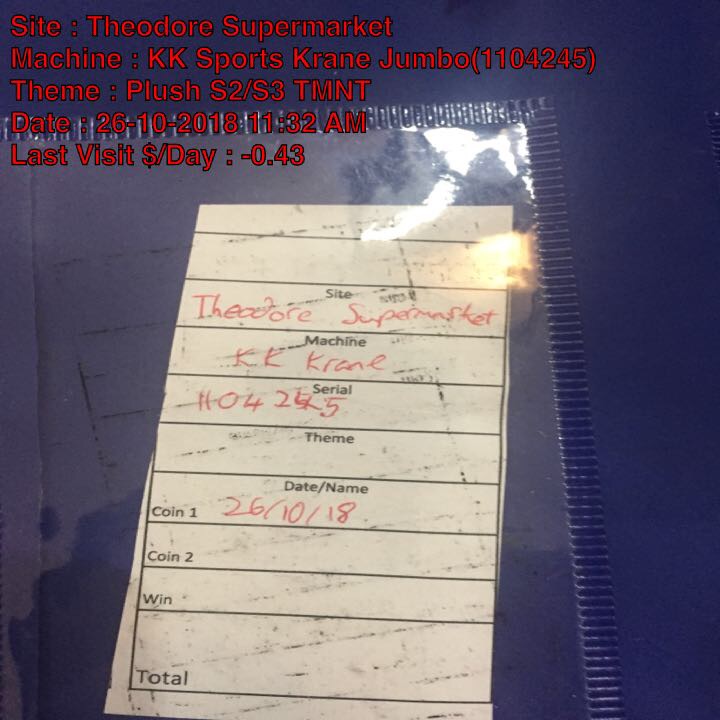 Site : Theodore Supermarket
Machine : KK Sports Krane Jumbo(1104245)
Theme : Plush S2/S3 TMNT
Date : 26-10-2018 11:32 AM
Last Visit $/Day : -0.43
Site
Theodore Supermarket
Machine
KK Krane
Serial
1104245
Theme
Date/Name
Coin 1 26/10/18
Coin 2
Win
Total